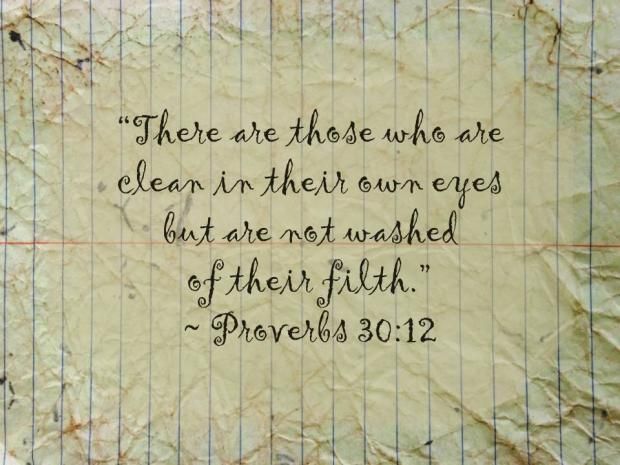 “There are those who are
clean in their own eyes
but are not washed
of their filth.”
~ Proverbs 30:12